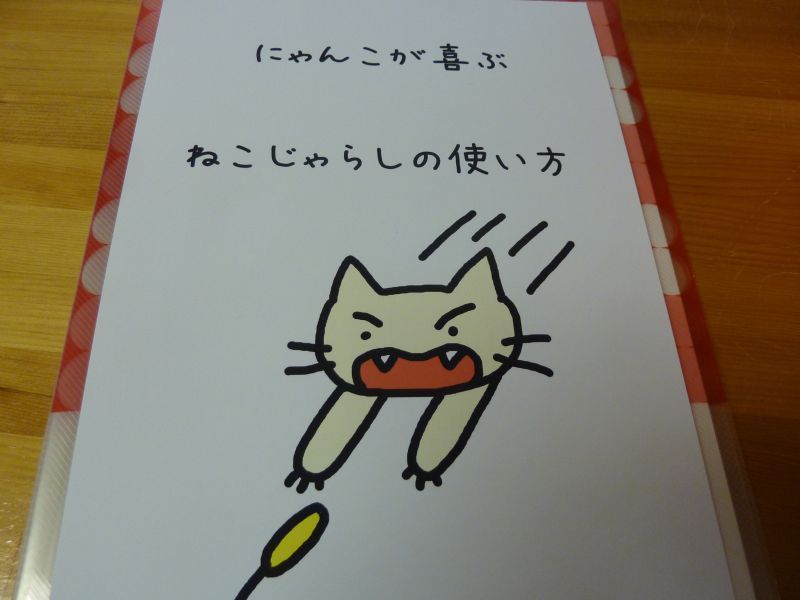 にゃんこが喜ぶ
ねこじゃらしの使い方